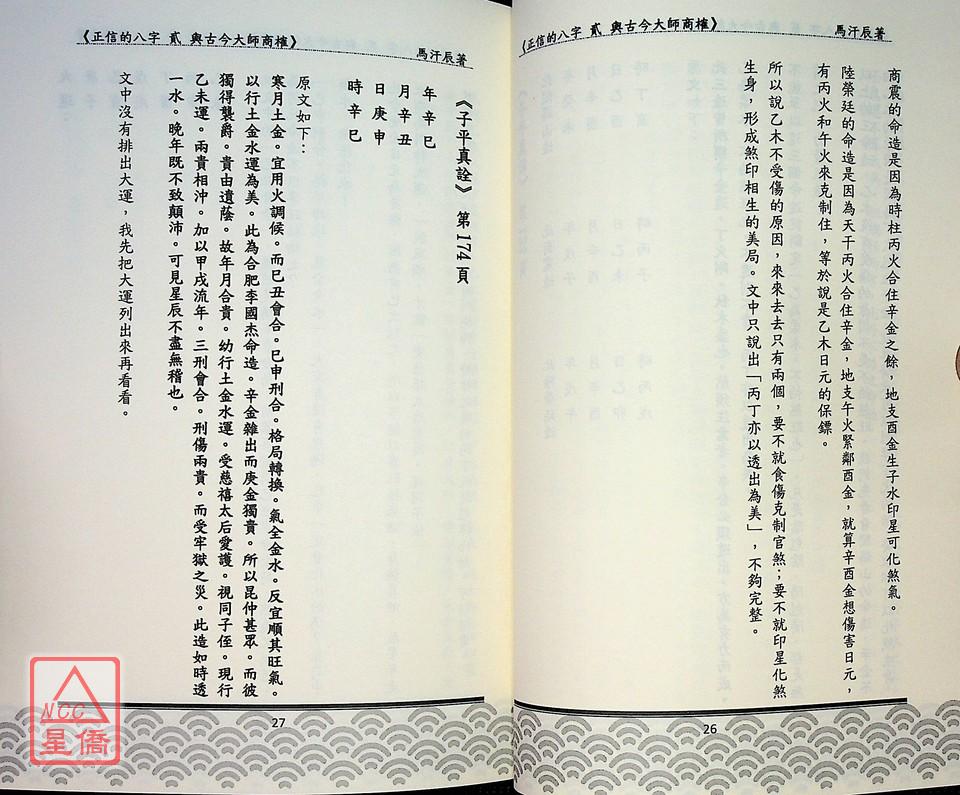 《正信的八字 貳 與古今大師商榷》
馬汗辰著
商震的命造是因為時柱丙火合住辛金之餘，地支酉金生子水印星可化煞氣。
陸榮廷的命造是因為天干丙火合住辛金，地支午火緊鄰酉金，就算辛酉金想傷害日元，
有丙火和午火來克制住，等於說是乙木日元的保鏢。
所以說乙木不受傷的原因，來來去去只有兩個，要不就食傷克制官煞；要不就印星化煞
生身，形成煞印相生的美局。文中只說出「丙丁亦以透出為美」，不夠完整。
26
《正信的八字 貳 與古今大師商榷》
馬汗辰著
《子平真詮》 第174頁
年辛巳
月辛丑
日庚申
時辛巳
原文如下：
寒月土金。宜用火調候。而巳丑會合。巳申刑合。格局轉換。氣全金水。反宜順其旺氣。
以行土金水運為美。此為合肥李國杰命造。辛金雜出而庚金獨貴。所以昆仲甚眾。而彼
獨得襲爵。貴由遺蔭。故年月合貴。幼行土金水運。受慈禧太后愛護。視同子侄。現行
乙未運。兩貴相沖。加以甲戌流年。三刑會合。刑傷兩貴。而受牢獄之災。此造如時透
一水。晚年既不致顛沛。可見星辰不盡無稽也。
文中沒有排出大運，我先把大運列出來再看看。
27
NCC
星僑